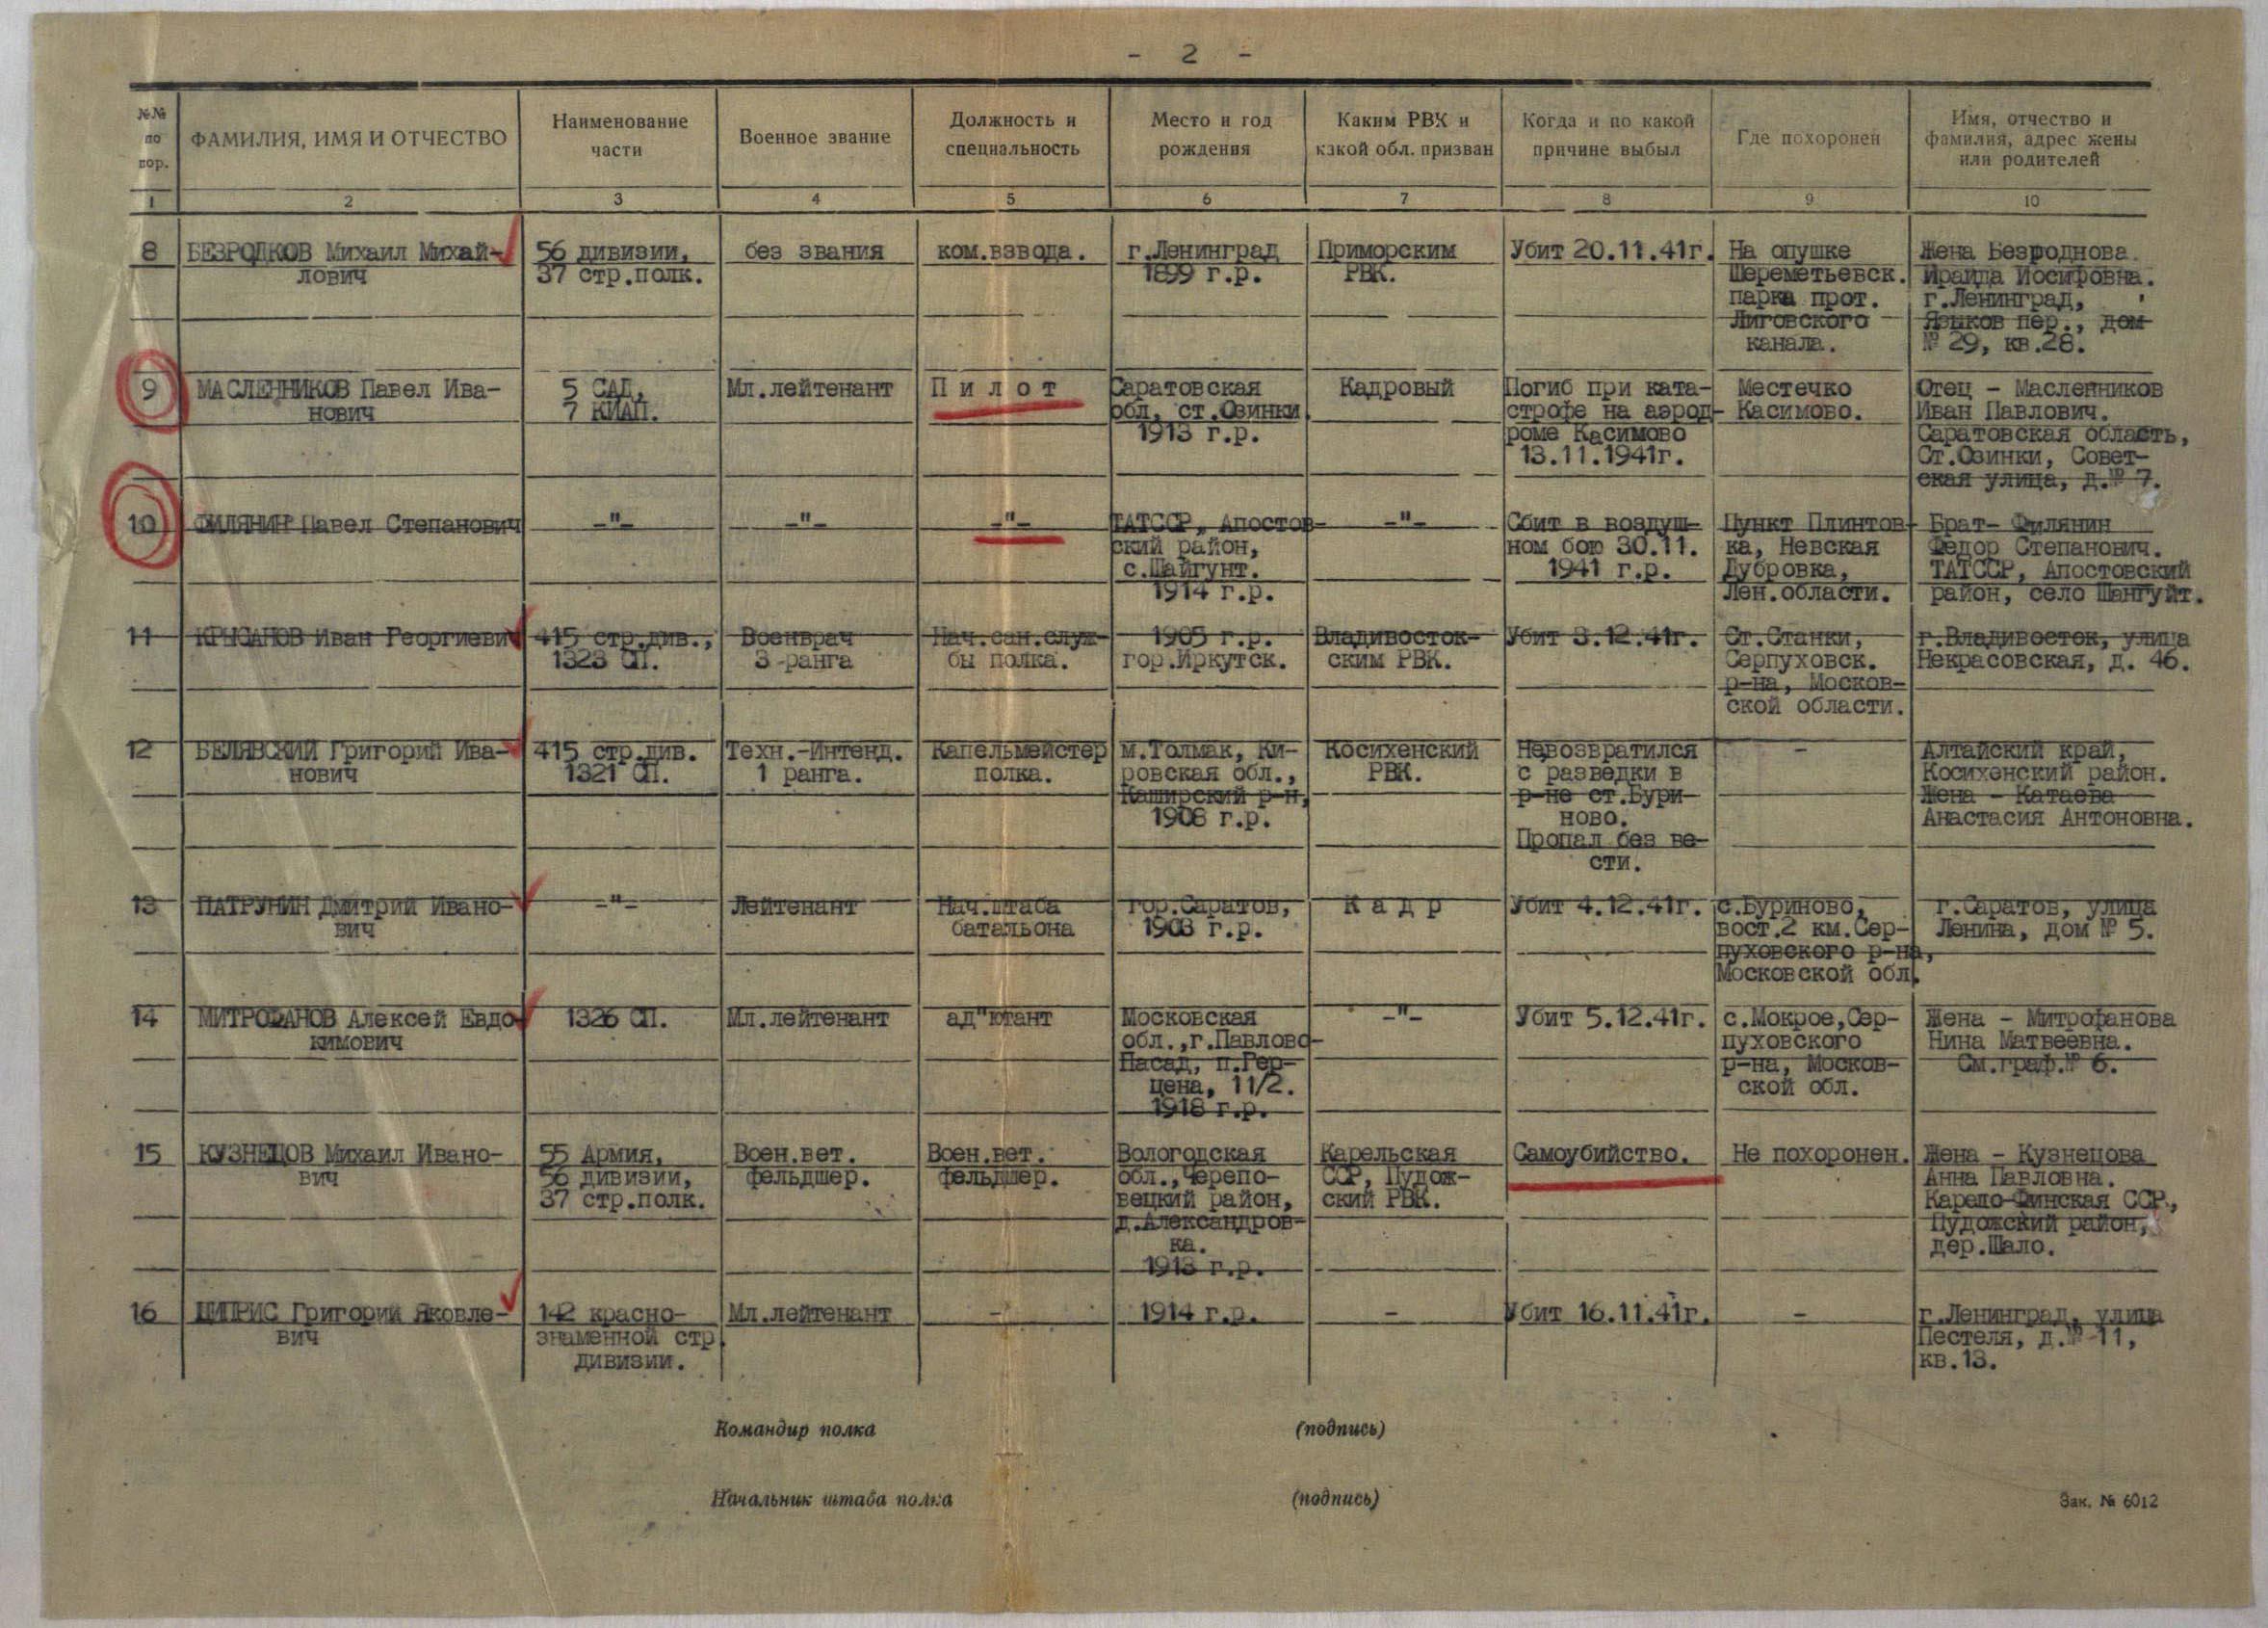 - 2 -
№№ по пор.
ФАМИЛИЯ, ИМЯ И ОТЧЕСТВО
Наименование части
Военное звание
Должность и специальность
Место и год рождения
Каким РВК и какой обл. призван
Когда и по какой причине выбыл
Где похоронен
Имя, отчество и фамилия, адрес жены или родителей
1 2 3 4 5 6 7 8 9 10
8 БЕЗРОДКОВ Михаил Михай- 56 дивизии, без звания ком.взвода. г.Ленинград Приморским Убит 20.11.41г. На опушке Жена Безроднова.
лович 37 стр.полк. 1899 г.р. РВК. Шереметьевск. Ираида Иосифовна.
парка прот. г.Ленинград,
Лиговского Языков пер., дом
канала. № 29, кв.28.
9 МАСЛЕННИКОВ Павел Ива- 5 САД, Мл.лейтенант Пилот Саратовская Кадровый Погиб при ката- Местечко Отец - Масленников
нович 7 КИАП. обл, ст.Озинки строфе на аэрод- Касимово. Иван Павлович.
1913 г.р. роме Касимово Саратовская область,
13.11.1941г. Ст.Озинки, Совет-
ская улица, д.№ 7.
10 ФИЛЯНИН Павел Степанович -"- -"- -"- ТАТССР, Апостов- -"- Сбит в воздуш- Пункт Плинтов- Брат- Филянин
ский район, ном бою 30.11. ка, Невская Федор Степанович.
с.Шайгунт. 1941 г.р. Дубровка, ТАТССР, Апостовский
1914 г.р. Лен.области. район, село Шангуйт.
11 КРЫСАНОВ Иван Георгиевич 415 стр.див., Военврач Нач.сан.служ- 1905 г.р. Владивосток- Убит 3.12.41г. Ст.Станки, г.Владивосток, улица
1323 СП. 3-ранга бы полка. гор.Иркутск. ским РВК. Серпуховск. Некрасовская, д. 46.
р-на, Москов-
ской области.
12 БЕЛЯВСКИЙ Григорий Ива- 415 стр.див. Техн.-Интенд. Капельмейстер м.Толмак, Ки- Косихенский Невозвратился - Алтайский край,
нович 1321 СП. 1 ранга. полка. ровская обл., РВК. с разведки в Косихенский район.
Каширский р-н, р-не ст.Бури- Жена - Катаева
1908 г.р. ново. Анастасия Антоновна.
Пропал без ве-
сти.
13 ПАТРУНИН Дмитрий Ивано- -"- Лейтенант Нач.штаба гор.Саратов, Кадр Убит 4.12.41г. с.Буриново, г.Саратов, улица
вич батальона 1903 г.р. вост.2 км.Сер- Ленина, дом № 5.
пуховского р-на,
Московской обл.
14 МИТРОФАНОВ Алексей Евдо- 1326 СП. Мл.лейтенант ад"ютант Московская -"- Убит 5.12.41г. с.Мокрое,Сер- Жена - Митрофанова
кимович обл.,г.Павлово- пуховского Нина Матвеевна.
Пасад, п.Гер- р-на, Москов- См.граф.№ 6.
цена, 11/2. ской обл.
1918 г.р.
15 КУЗНЕЦОВ Михаил Ивано- 55 Армия, Воен.вет. Воен.вет. Вологодская Карельская Самоубийство. Не похоронен. Жена - Кузнецова
вич 56 дивизии, фельдшер. фельдшер. обл.,Черепо- ССР, Пудож- Анна Павловна.
37 стр.полк. вецкий район, ский РВК. Карело-Финская ССР,
д.Александров- Пудожский район,
ка. дер.Шало.
1913 г.р.
16 ЦИПРИС Григорий Яковле- 142 красно- Мл.лейтенант - 1914 г.р. - Убит 16.11.41г. - г.Ленинград, улица
вич знаменной стр. Пестеля, д.№ 11,
дивизии. кв.13.
Командир полка (подпись)
Начальник штаба полка (подпись)
Зак. № 6012